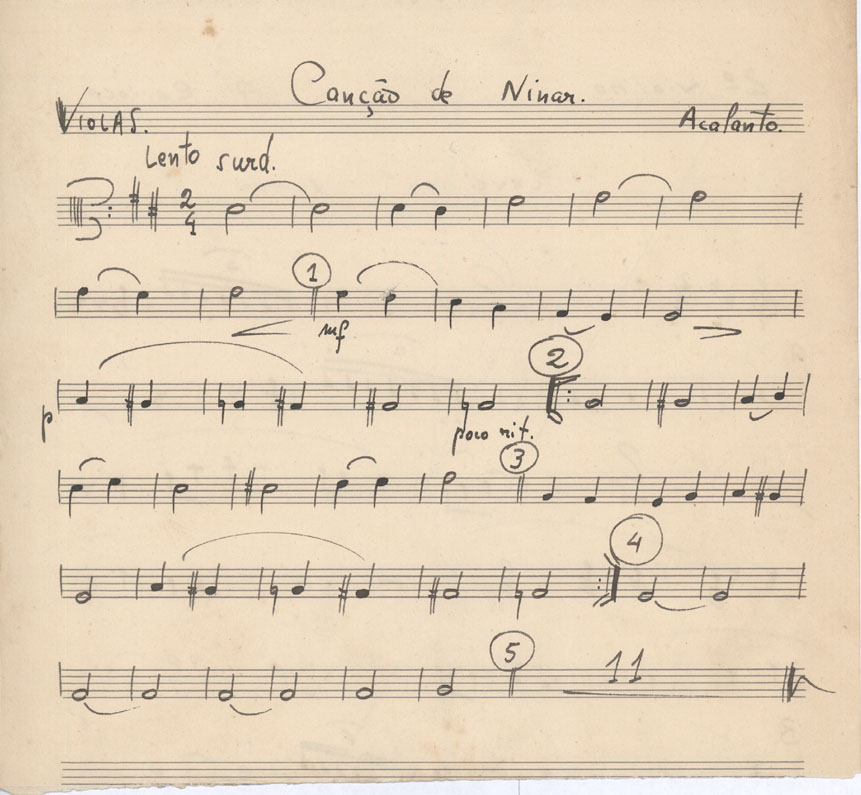 Canção de Ninar.
VIOLAS. Acalanto.
Lento surd.
2
4
1
mf
2
p
poco rit.
3
4
5
11